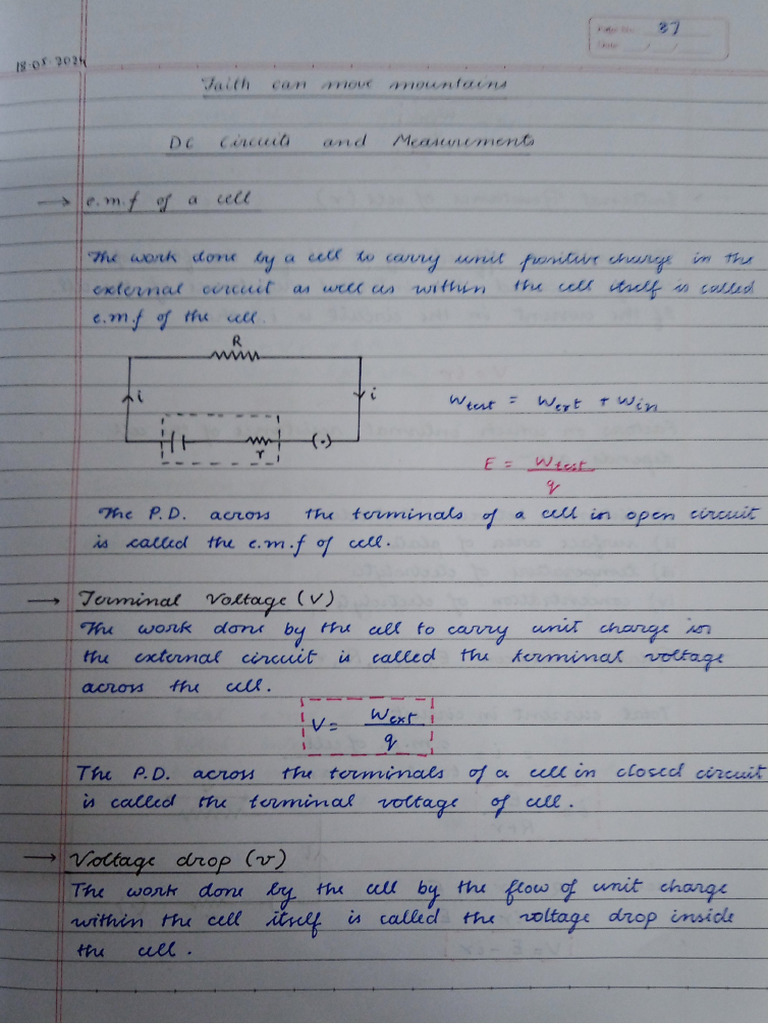 Page No. 37
Date / /
18-05-2024
Faith can move mountains
DC Circuits and Measurements
→ e.m.f of a cell
The work done by a cell to carry unit positive charge in the
external circuit as well as within the cell itself is called
e.m.f of the cell.
R
i
i
r
Wtest = Wext + Win
E = Wtest / q
The P.D. across the terminals of a cell in open circuit
is called the e.m.f of cell.
→ Terminal Voltage (V)
The work done by the cell to carry unit charge in
the external circuit is called the terminal voltage
across the cell.
V = Wext / q
The P.D. across the terminals of a cell in closed circuit
is called the terminal voltage of cell.
→ Voltage drop (v)
The work done by the cell by the flow of unit charge
within the cell itself is called the voltage drop inside
the cell.